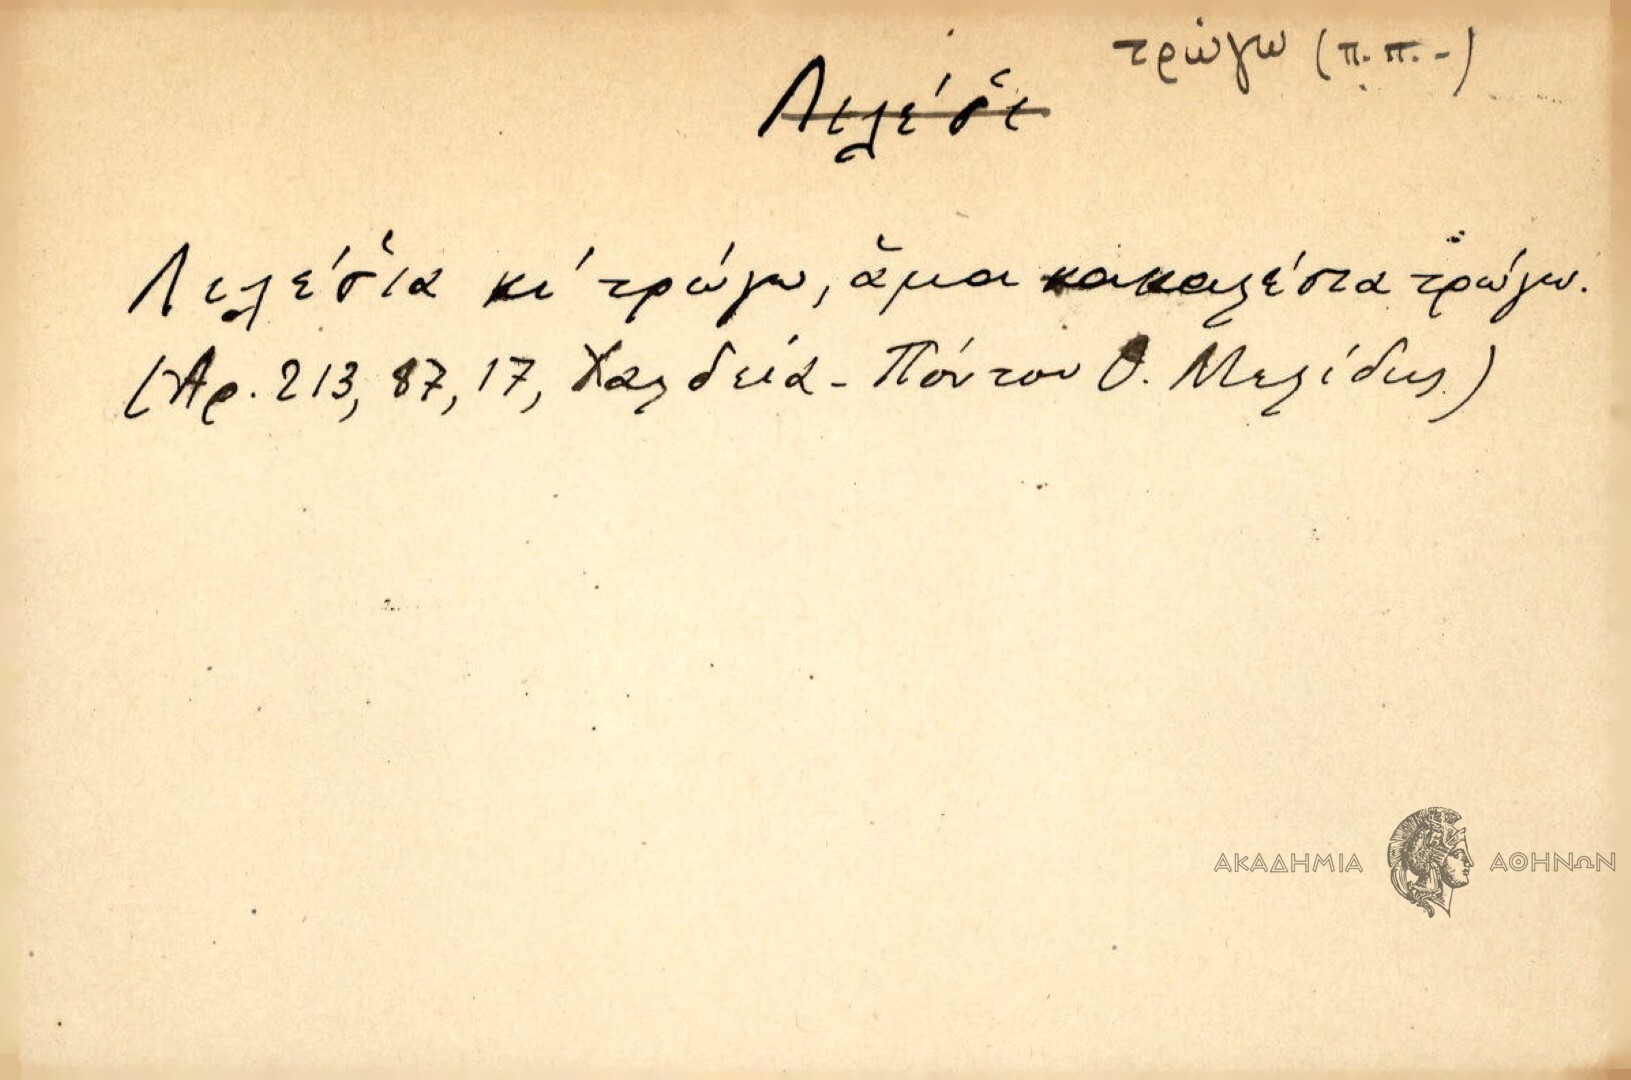 τρώγω (π.π.-)
Λελέσ̌ι
Λελέσ̌ια κι' τρώγω, ἅμα κακαλέσια τρώγω.
(Ἀρ. 213, 87, 17, Χαλδεία - Πόντου Θ. Μελίδης)
ΑΚΑΔΗΜΙΑ ΑΘΗΝΩΝ